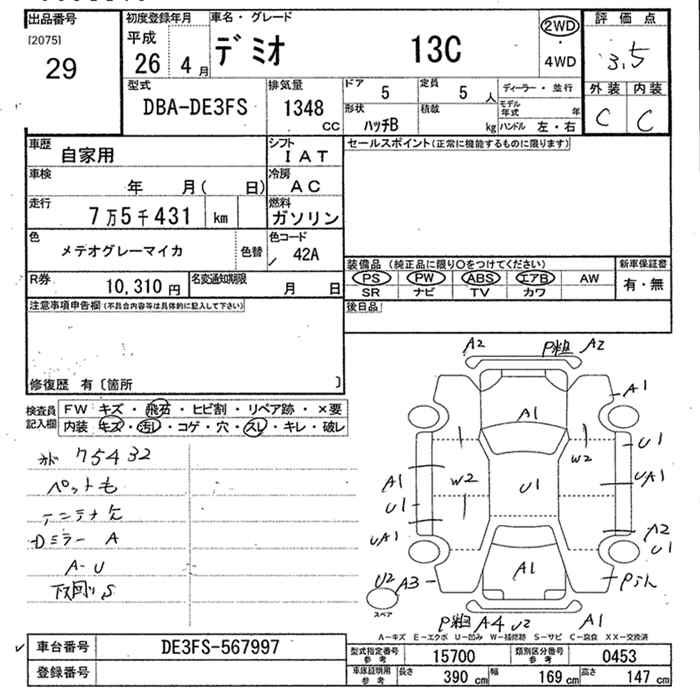 出品番号
[2075]
29
初度登録年月
平成
26 4 月
車名・グレード
デミオ 13C
2WD
・
4WD
評価点
3.5
外装 内装
C C
型式
DBA-DE3FS
排気量
1348
CC
ドア
5
定員
5 人
形状
ハッチB
積載
kg
ディーラー・並行
モデル年式 年
ハンドル 左・右
車歴
自家用
シフト
IAT
車検
年 月( 日)
冷房
AC
走行
7万5千431 km
燃料
ガソリン
色
メテオグレーマイカ
色替
色コード
42A
R券
10,310 円
名変通知期限
月 日
セールスポイント(正常に機能するものに限ります)
装備品 (純正品に限り○をつけてください)
PS PW ABS エアB AW
SR ナビ TV カワ
新車保証書
有・無
後日品
注意事項申告欄(不具合内容等は具体的に記入して下さい)
修復歴 有〔箇所 〕
検査員記入欄
FW キズ・飛石・ヒビ割・リペア跡・×要
内装 キズ・汚レ・コゲ・穴・スレ・キレ・破レ
75432
ペットも
アンテナ欠
Dミラー A
A-U
下回りS
A2 P粗 A2
A1
A1
U1
W2 W2
A1 U1 UA1
U1
UA1 A2
U1
U2 A3 A1
スペア
P粗 A4 U2 A1
A-キズ E-エクボ U-凹み W-補修跡 S-サビ C-腐食 XX-交換済
車台番号
DE3FS-567997
登録番号
型式指定番号
参考
15700
類別区分番号
参考
0453
車庫証明用
参考
長さ 390 cm 幅 169 cm 高さ 147 cm